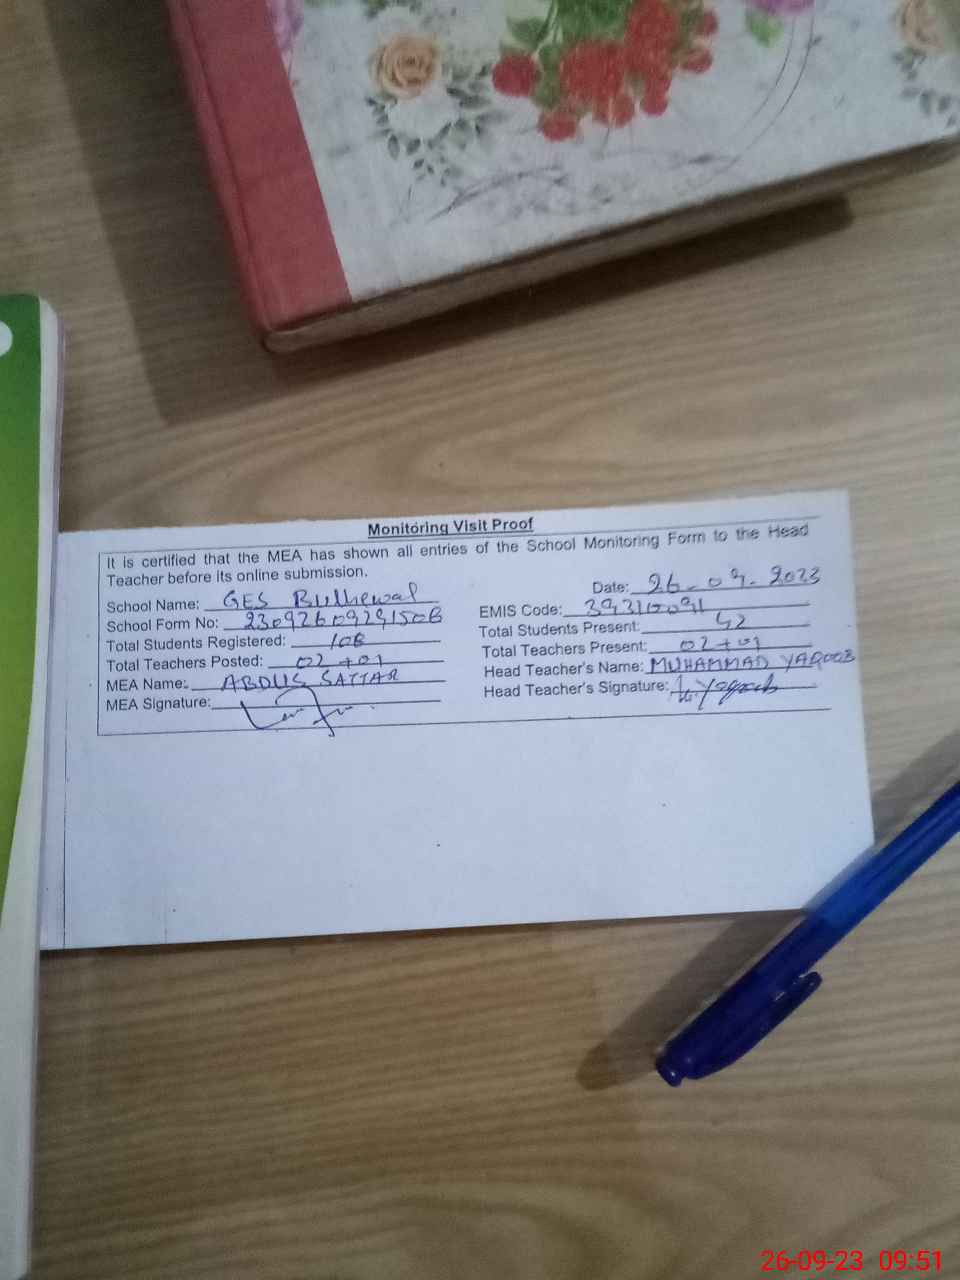 Monitoring Visit Proof
It is certified that the MEA has shown all entries of the School Monitoring Form to the Head
Teacher before its online submission.
Date: 26-09-2023
School Name: GES Bulhewal
EMIS Code: 39310091
School Form No:
Total Students Present: 52
Total Students Registered: 108
Total Teachers Present: 02+01
Total Teachers Posted: 02+01
Head Teacher's Name: MUHAMMAD YAQOOB
MEA Name: ABDUS SATTAR
Head Teacher's Signature: Yaqoob
MEA Signature:
26-09-23 09:51